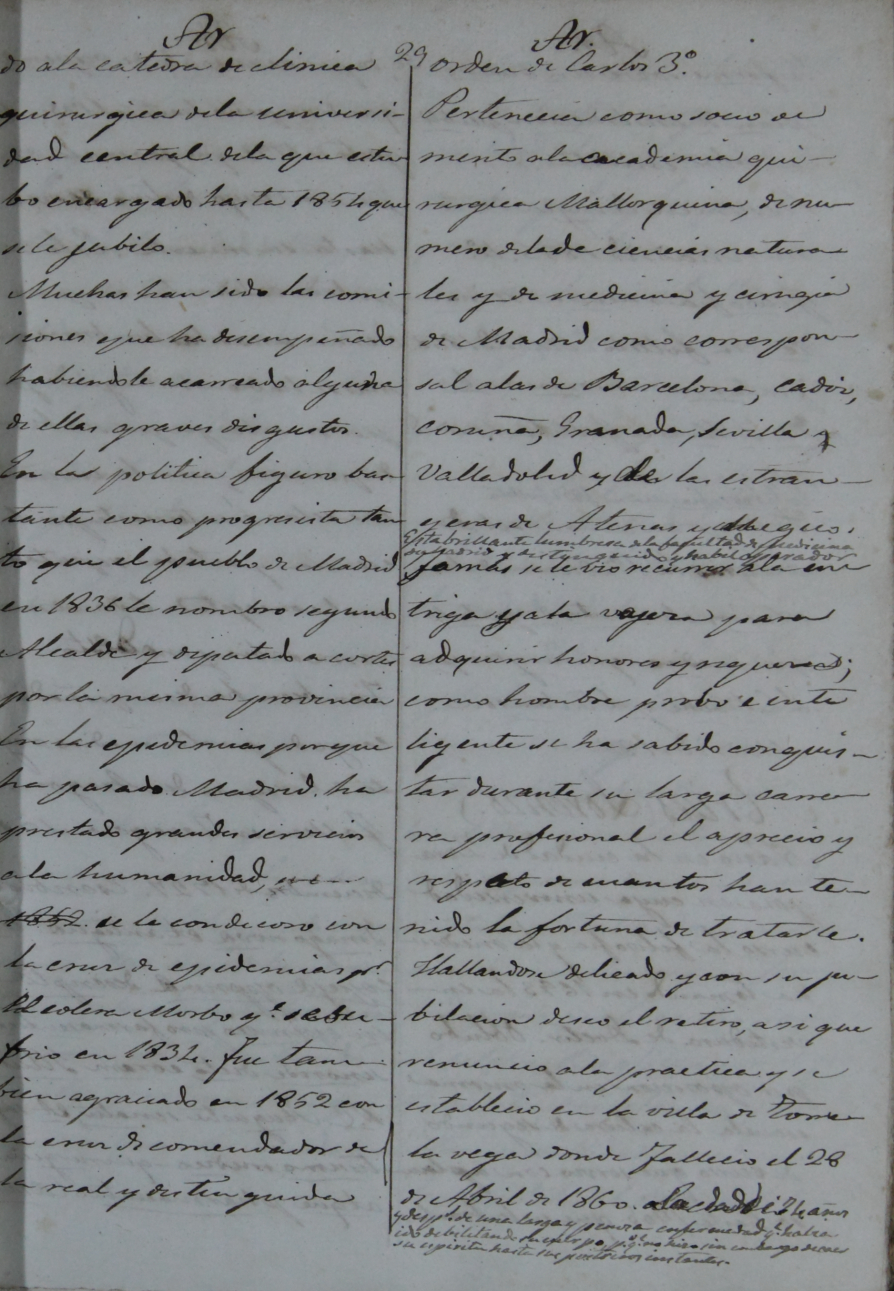 Ar
do a la catedra de clinica
quirurgica de la universi-
dad central de la que estu
bo encargado hasta 1854 que
se le jubilo.
Muchas han sido las comi-
siones que ha desempeñado
habiendole acarreado alguna
de ellas graves disgustos.
En la politica figuro bas
tante como progresista tan
to que el pueblo de Madrid
en 1836 le nombro segundo
Alcalde y diputado a cortes
por la misma provincia
En las epidemias por que
ha pasado Madrid ha
prestado grandes servicios
a la humanidad,
1852. se le condecoro con
la cruz de epidemias pr.
El colera Morbo qe. se su-
frio en 1834. Fue tam-
bien agraciado en 1852 con
la cruz de comendador de
la real y distinguida
29
Ar.
orden de Carlos 3º.
Pertenecia como socio de
merito a la academia qui-
rurgica Mallorquina, de nu-
mero de la de ciencias natura
les y de medicina y cirugia
de Madrid como correspon-
sal a las de Barcelona, Cadiz,
coruña, Granada, Sevilla y
Valladolid y de las estran-
geras de Atenas y
Esta brillante lumbrera de la facultad de medicina
de Madrid y distinguido y habil operador
jamas se le vio recurrir a la in
triga y a la para
adquirir honores y riquezas;
como hombre probo e inte
ligente se ha sabido conquis-
tar durante su larga carre-
ra profesional el aprecio y
respeto de cuantos han te-
nido la fortuna de tratarle.
Hallandose delicado y con su ju-
bilacion deseo el retiro, asi que
renuncio a la practica y se
establecio en la villa de Torre-
la vega donde fallecio el 28
de Abril de 1860. a la edad de 74 años
y desps. de una larga y penosa enfermedad qe. habia
ido debilitando su cuerpo, y qe. no hizo sin embargo decaer
su espiritu hasta sus postreros instantes.